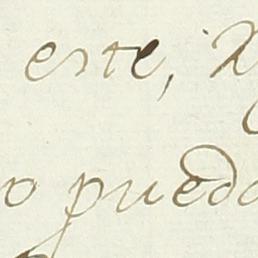 este,
o puedo